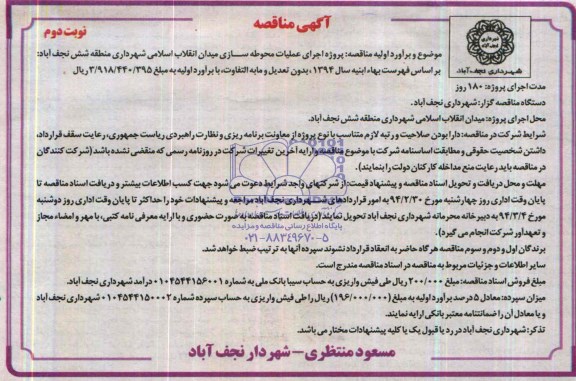 آگهی مناقصه
نوبت دوم
شهرداری نجف آباد
موضوع و برآورد اولیه مناقصه: پروژه اجرای عملیات محوطه سازی میدان انقلاب اسلامی شهرداری منطقه شش نجف آباد:
بر اساس فهرست بهاء ابنیه سال ۱۳۹۴، بدون تعدیل و مابه التفاوت، با برآورد اولیه به مبلغ ۳/۹۱۸/۴۴۰/۳۹۵ ریال
مدت اجرای پروژه: ۱۸۰ روز
دستگاه مناقصه گزار: شهرداری نجف آباد.
محل اجرای پروژه: میدان انقلاب اسلامی شهرداری منطقه شش نجف آباد.
شرایط شرکت در مناقصه: دارا بودن صلاحیت و رتبه لازم متناسب با نوع پروژه از معاونت برنامه ریزی و نظارت راهبردی ریاست جمهوری، رعایت سقف قرارداد،
داشتن شخصیت حقوقی و مطابقت اساسنامه شرکت با موضوع مناقصه و ارایه آخرین تغییرات شرکت در روزنامه رسمی که منقضی نشده باشد (شرکت کنندگان
در مناقصه باید رعایت منع مداخله کارکنان دولت را بنمایند).
مهلت و محل دریافت و تحویل اسناد مناقصه و پیشنهاد قیمت: از شرکتهای واجد شرایط دعوت می شود جهت کسب اطلاعات بیشتر و دریافت اسناد مناقصه تا
پایان وقت اداری روز چهارشنبه مورخ ۹۴/۲/۳۰ به امور قراردادهای شهرداری نجف آباد مراجعه و پیشنهادات خود را حداکثر تا پایان وقت اداری روز دوشنبه
مورخ ۹۴/۳/۴ به دبیرخانه محرمانه شهرداری نجف آباد تحویل نمایند (دریافت اسناد مناقصه به صورت حضوری و با ارایه معرفی نامه کتبی، با مهر و امضاء مجاز
و تعهدآور شرکت انجام می گیرد).
برندگان اول و دوم و سوم مناقصه هرگاه حاضر به انعقاد قرارداد نشوند سپرده آنها به ترتیب ضبط خواهد شد.
سایر اطلاعات و جزئیات مربوط به مناقصه در اسناد مناقصه مندرج است.
مبلغ فروش اسناد مناقصه: مبلغ ۲۰۰/۰۰۰ ریال طی فیش واریزی به حساب سیبا بانک ملی به شماره ۰۱۰۴۵۴۴۱۵۶۰۰۱ درآمد شهرداری نجف آباد.
میزان سپرده: معادل ۵ درصد برآورد اولیه به مبلغ (۱۹۶/۰۰۰/۰۰۰) ریال را طی فیش واریزی به حساب سپرده شماره ۰۱۰۴۵۴۴۱۵۰۰۰۲ شهرداری نجف آباد
و یا معادل آن را ضمانتنامه معتبر بانکی ارایه نمایند.
تذکر: شهرداری نجف آباد در رد یا قبول یک یا کلیه پیشنهادات مختار می باشد.
مسعود منتظری – شهردار نجف آباد
پایگاه اطلاع رسانی مناقصه و مزایده
۰۲۱-۸۸۳۴۹۶۷۰-۵